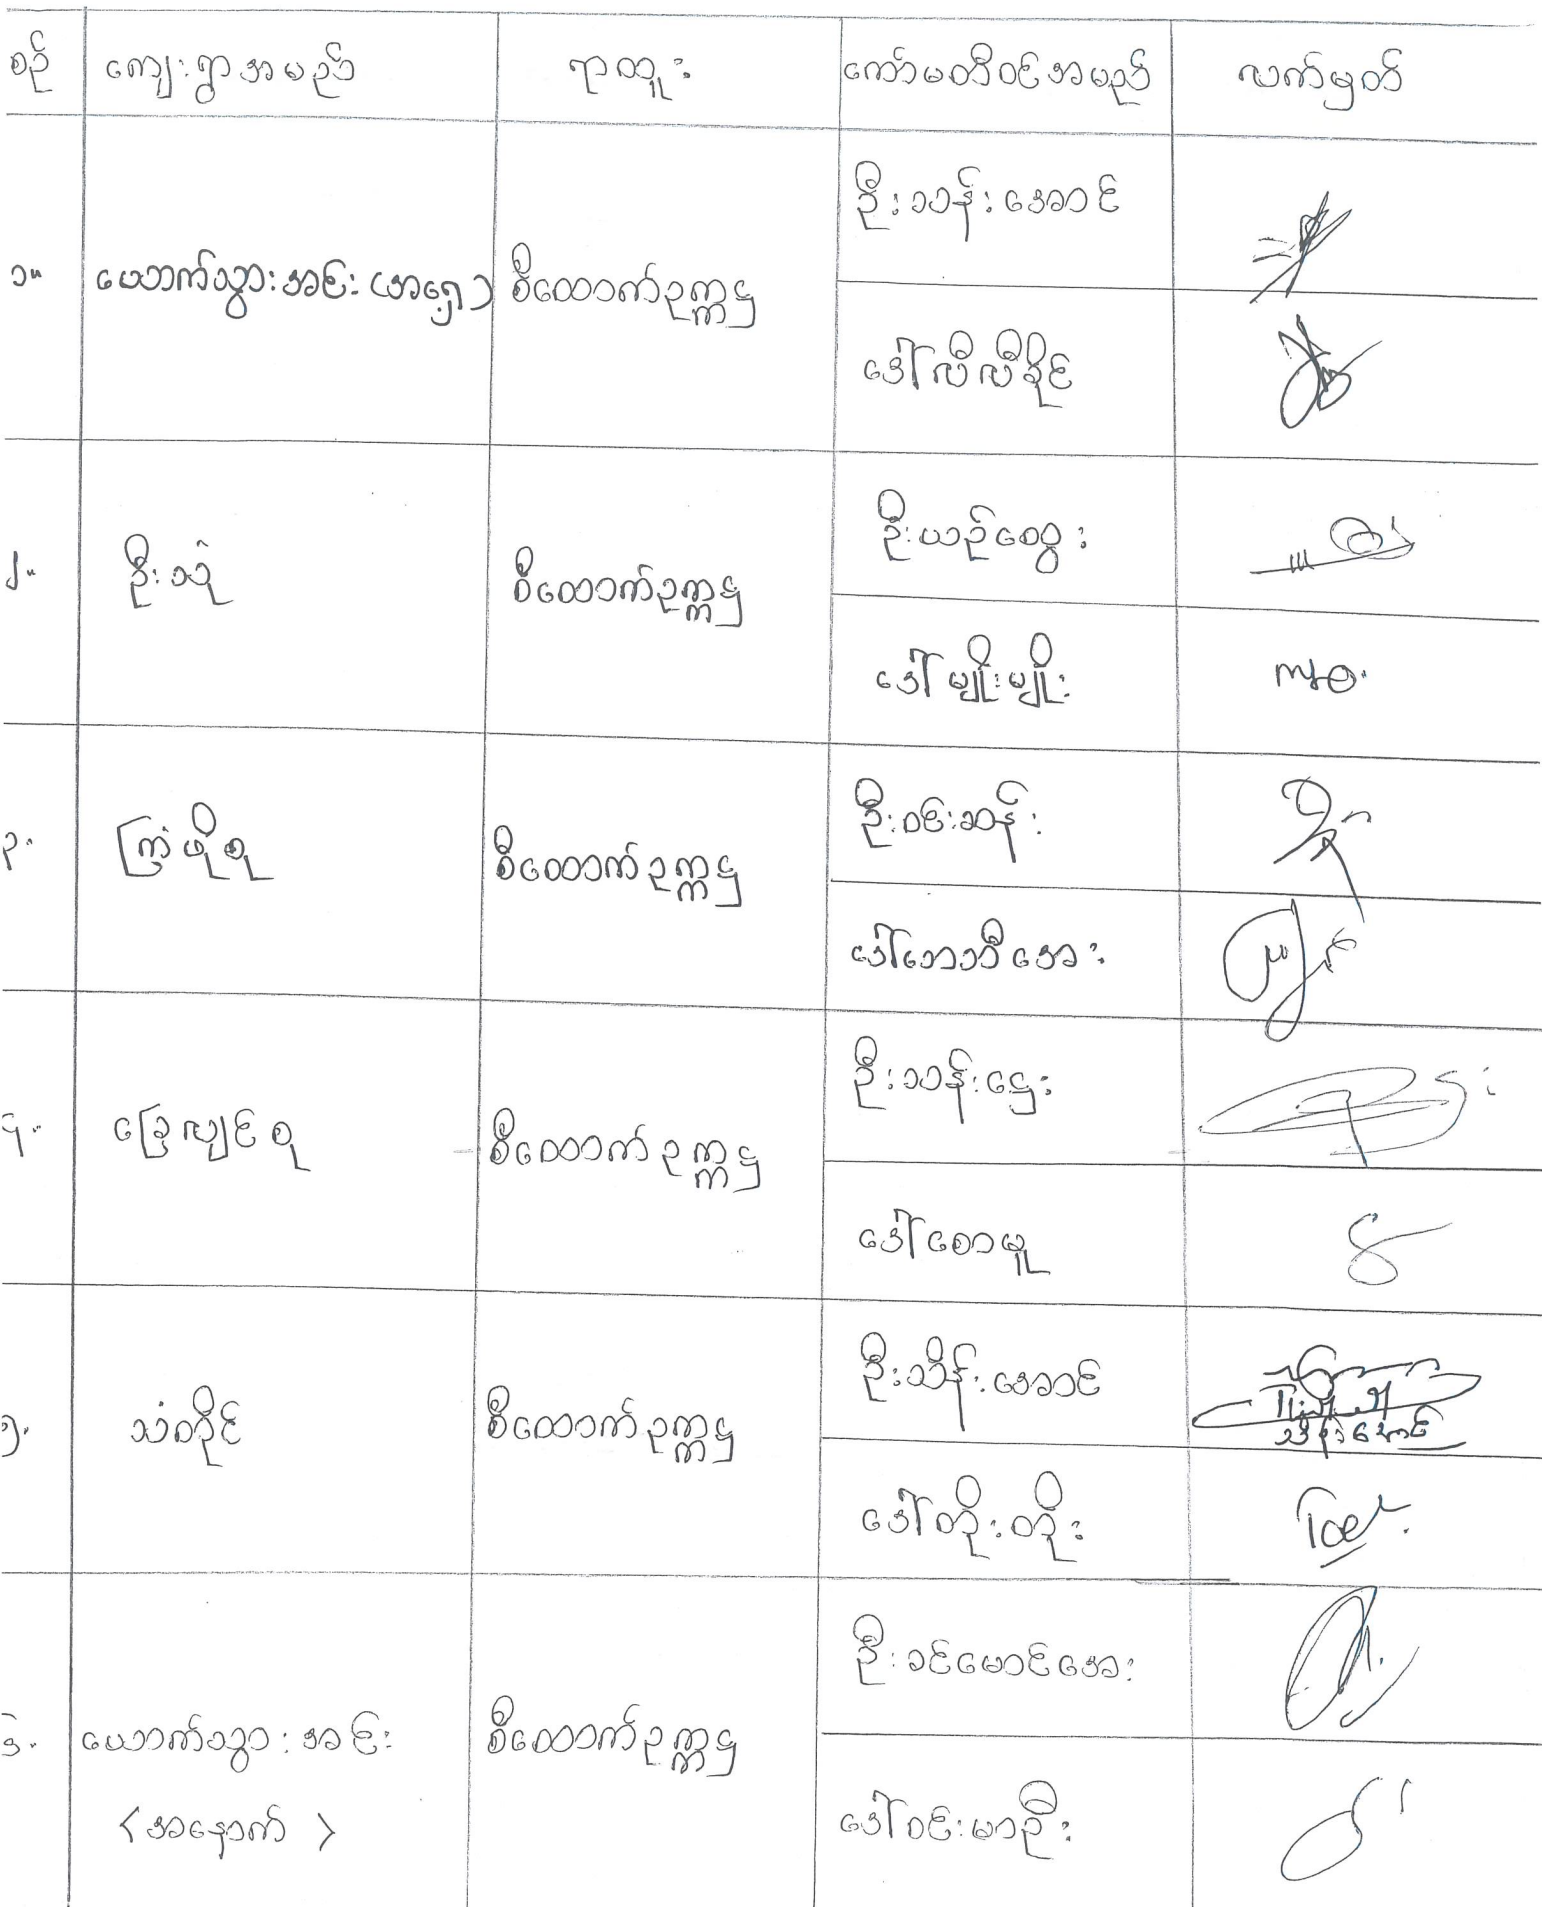 စဉ် ကျေးရွာအမည် ရာထူး ကော်မတီဝင်အမည် လက်မှတ်
၁။ ယောက်သွားအင်း (အရှေ့) စီထောက်ဥက္ကဋ္ဌ ဦးသန်းအောင်
ဒေါ်လီလီခိုင်
၂။ ဦးသုံ စီထောက်ဥက္ကဋ္ဌ ဦးယဉ်ထွေး
ဒေါ်မျိုးမျိုး
၃။ ကြံဖိုစု စီထောက်ဥက္ကဋ္ဌ ဦးဝင်းဆန်း
ဒေါ်ဘေဘီအေး
၄။ ခြေလျင်စု စီထောက်ဥက္ကဋ္ဌ ဦးသန်းဌေး
ဒေါ်စောမူ
၅။ သံတိုင် စီထောက်ဥက္ကဋ္ဌ ဦးသိန်းအောင်
သိန်းအောင်
ဒေါ်တိုးတိုး
၆။ ယောက်သွားအင်း စီထောက်ဥက္ကဋ္ဌ ဦးခင်မောင်အေး
<အနောက်> ဒေါ်ဝင်းမာဦး